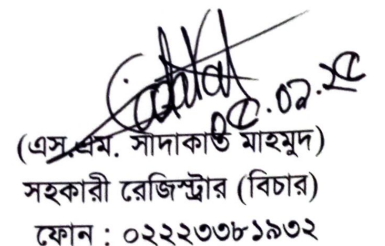 ০৫.০২.২৫
(এস.এম. সাদাকাত মাহমুদ)
সহকারী রেজিস্ট্রার (বিচার)
ফোন : ০২২২৩৩৮১৯৩২